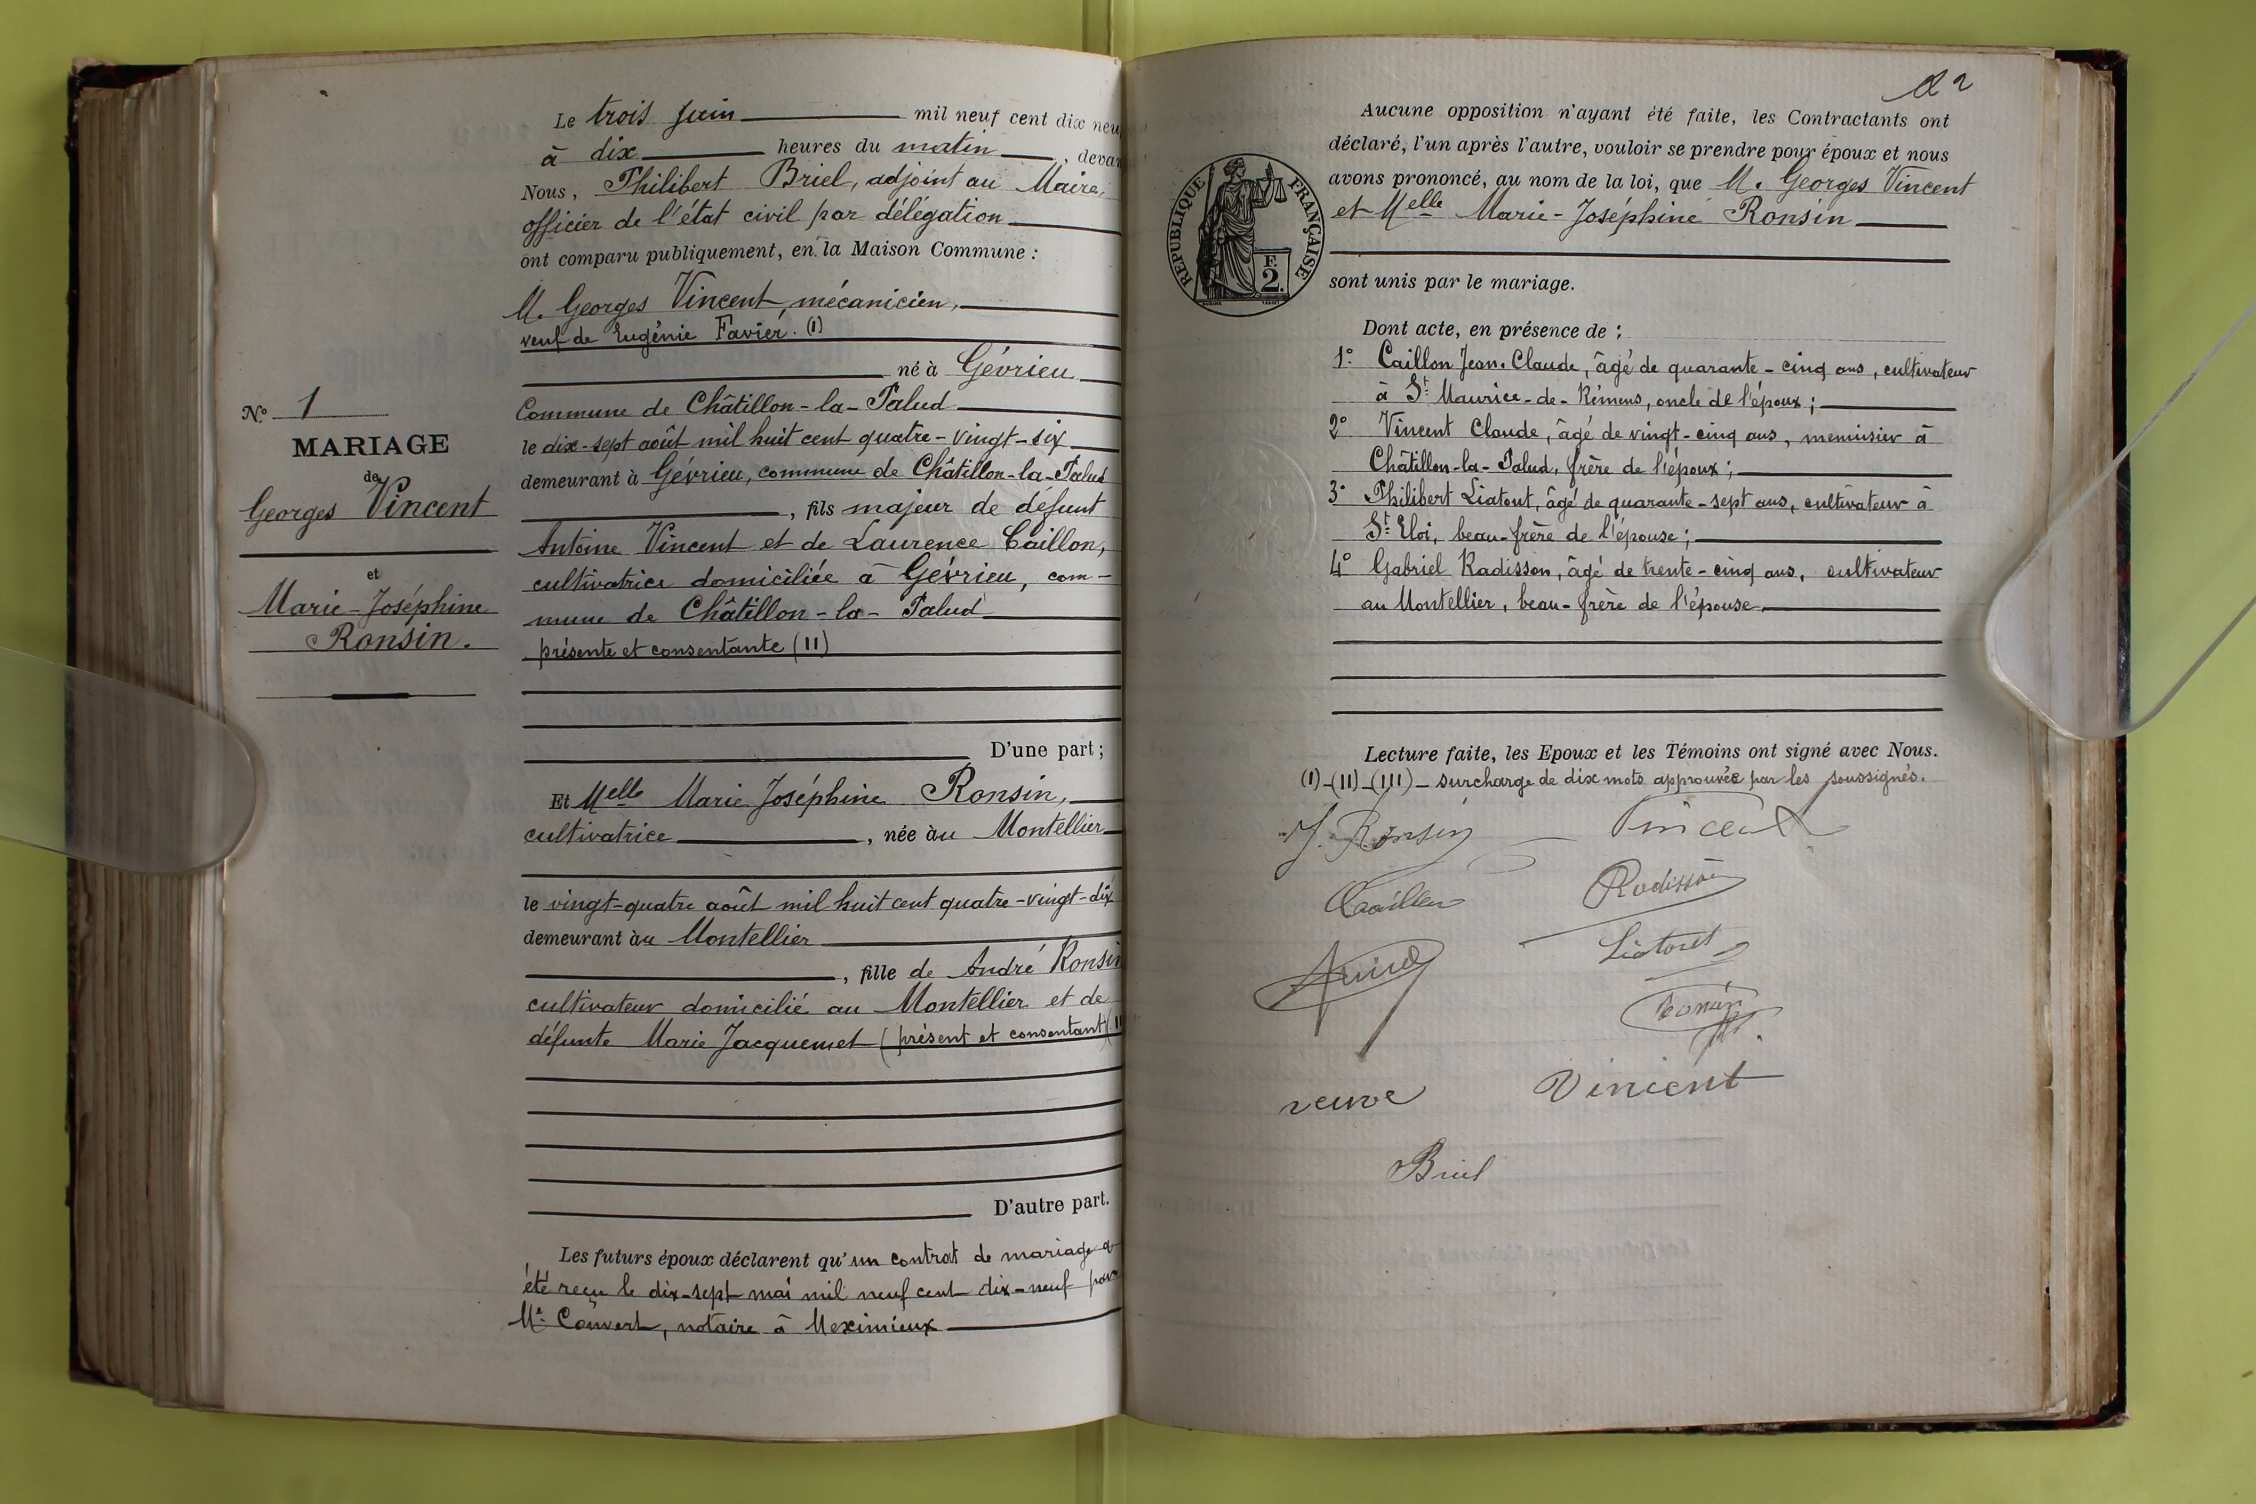 Le trois Juin mil neuf cent dix neuf
à dix heures du matin, devan
Nous, Philibert Briel, adjoint au Maire,
officier de l'état civil par délégation
ont comparu publiquement, en la Maison Commune :
M. Georges Vincent, mécanicien,
veuf de Eugénie Favier. (I)
né à Gévrieu
Commune de Châtillon-la-Palud
le dix-sept août mil huit cent quatre-vingt-six
demeurant à Gévrieu, commune de Châtillon-la-Palud
, fils majeur de défunt
Antoine Vincent et de Laurence Caillon,
cultivatrice domiciliée à Gévrieu, com-
mune de Châtillon-la-Palud
présente et consentante (II)
D'une part ;
Et Melle Marie Joséphine Ronsin,
cultivatrice, née au Montellier
le vingt-quatre août mil huit cent quatre-vingt-dix
demeurant au Montellier
, fille de André Ronsin
cultivateur domicilié au Montellier et de
défunte Marie Jacquemet (présent et consentant (II
D'autre part.
Les futurs époux déclarent qu'un contrat de mariage a
été reçu le dix-sept mai mil neuf cent dix-neuf par
Me Convert, notaire à Meximieux
No 1
MARIAGE
de
Georges Vincent
et
Marie-Joséphine
Ronsin.
Aucune opposition n'ayant été faite, les Contractants ont
déclaré, l'un après l'autre, vouloir se prendre pour époux et nous
avons prononcé, au nom de la loi, que M. Georges Vincent
et Melle Marie-Joséphine Ronsin
sont unis par le mariage.
RÉPUBLIQUE FRANÇAISE
F.
2.
Dont acte, en présence de :
1° Caillon Jean-Claude, âgé de quarante-cinq ans, cultivateur
à St Maurice-de-Rémens, oncle de l'époux ;
2° Vincent Claude, âgé de vingt-cinq ans, menuisier à
Châtillon-la-Palud, frère de l'époux ;
3° Philibert Liatout, âgé de quarante-sept ans, cultivateur à
St Eloi, beau-frère de l'épouse ;
4° Gabriel Radisson, âgé de trente-cinq ans, cultivateur
au Montellier, beau-frère de l'épouse
Lecture faite, les Epoux et les Témoins ont signé avec Nous.
(I)-(II)-(III)- surcharge de dix mots approuvée par les soussignés.
J. Ronsin Vincent
Caillon Radisson
Liatout
Ronsin
veuve Vincent
Briel